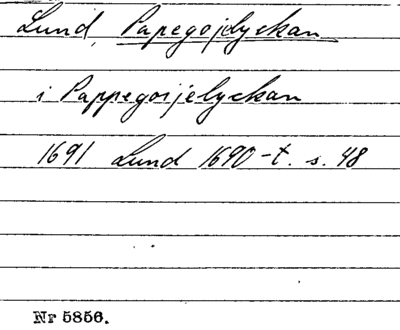 Lund, Papegojelyckan
i Pappegoijelyckan
1691 Lund 1690-t. s. 48
Nr 5856.